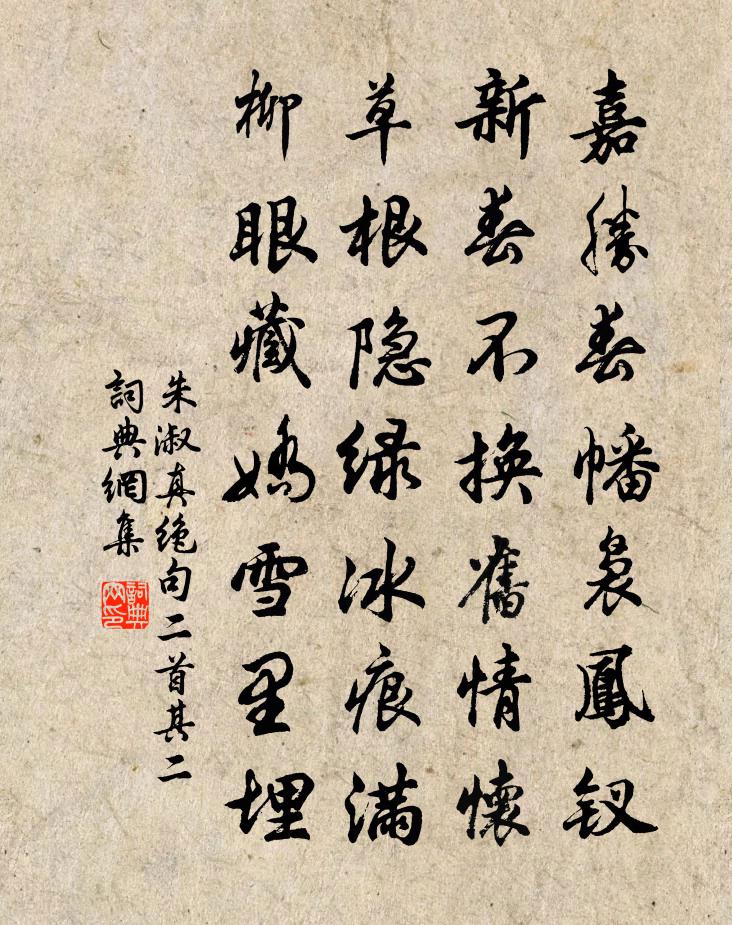 嘉勝春幡裊鳳釵
新春不換舊情懷
草根隐绿冰痕滿
柳眼藏嬌雪里埋
朱淑真绝句二首其二
詞典網集
詞典网印